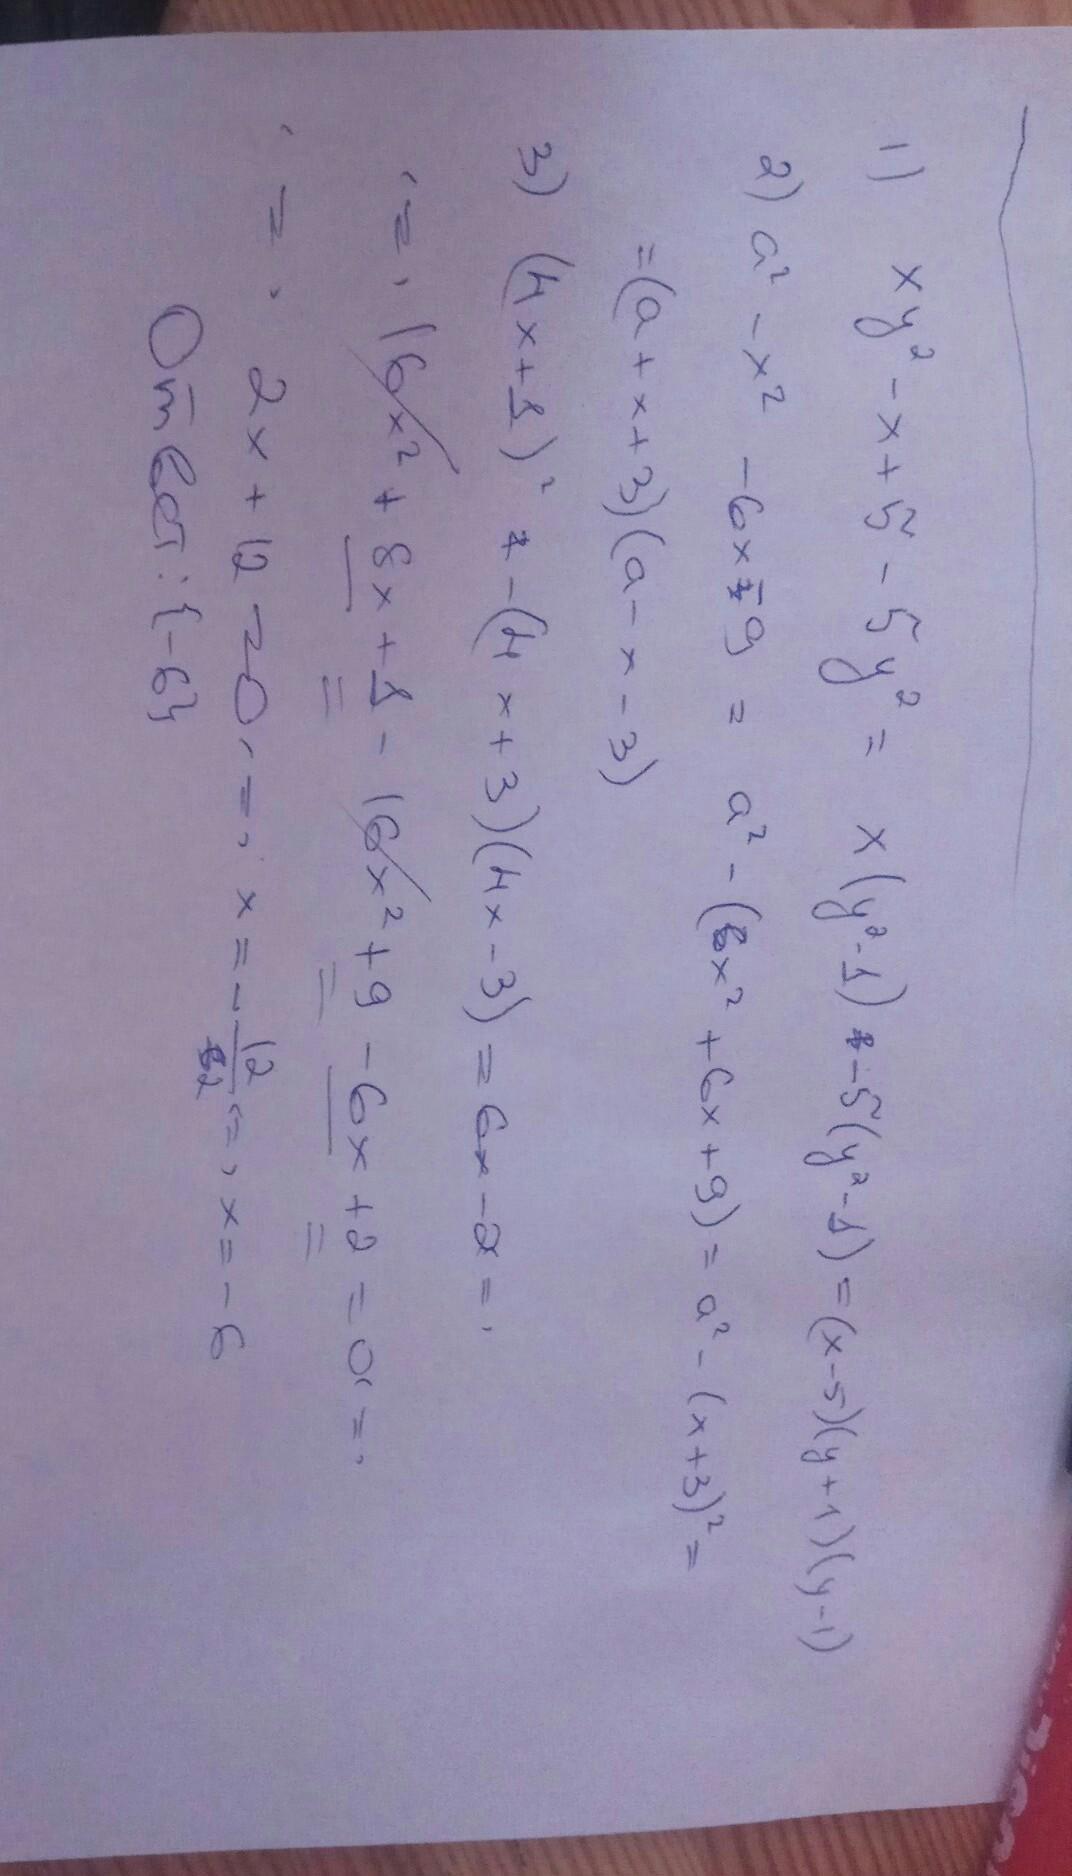 1) xy² - x + 5 - 5y² = x(y²-1) - 5(y²-1) = (x-5)(y+1)(y-1)
2) a² - x² - 6x - 9 = a² - (x² + 6x + 9) = a² - (x+3)² =
= (a + x + 3)(a - x - 3)
3) (4x+1)² - (4x+3)(4x-3) = 6x - 2 <=>
<=> 16x² + 8x + 1 - 16x² + 9 - 6x + 2 = 0 <=>
<=> 2x + 12 = 0 <=> x = -12/2 <=> x = -6
Ответ: {-6}